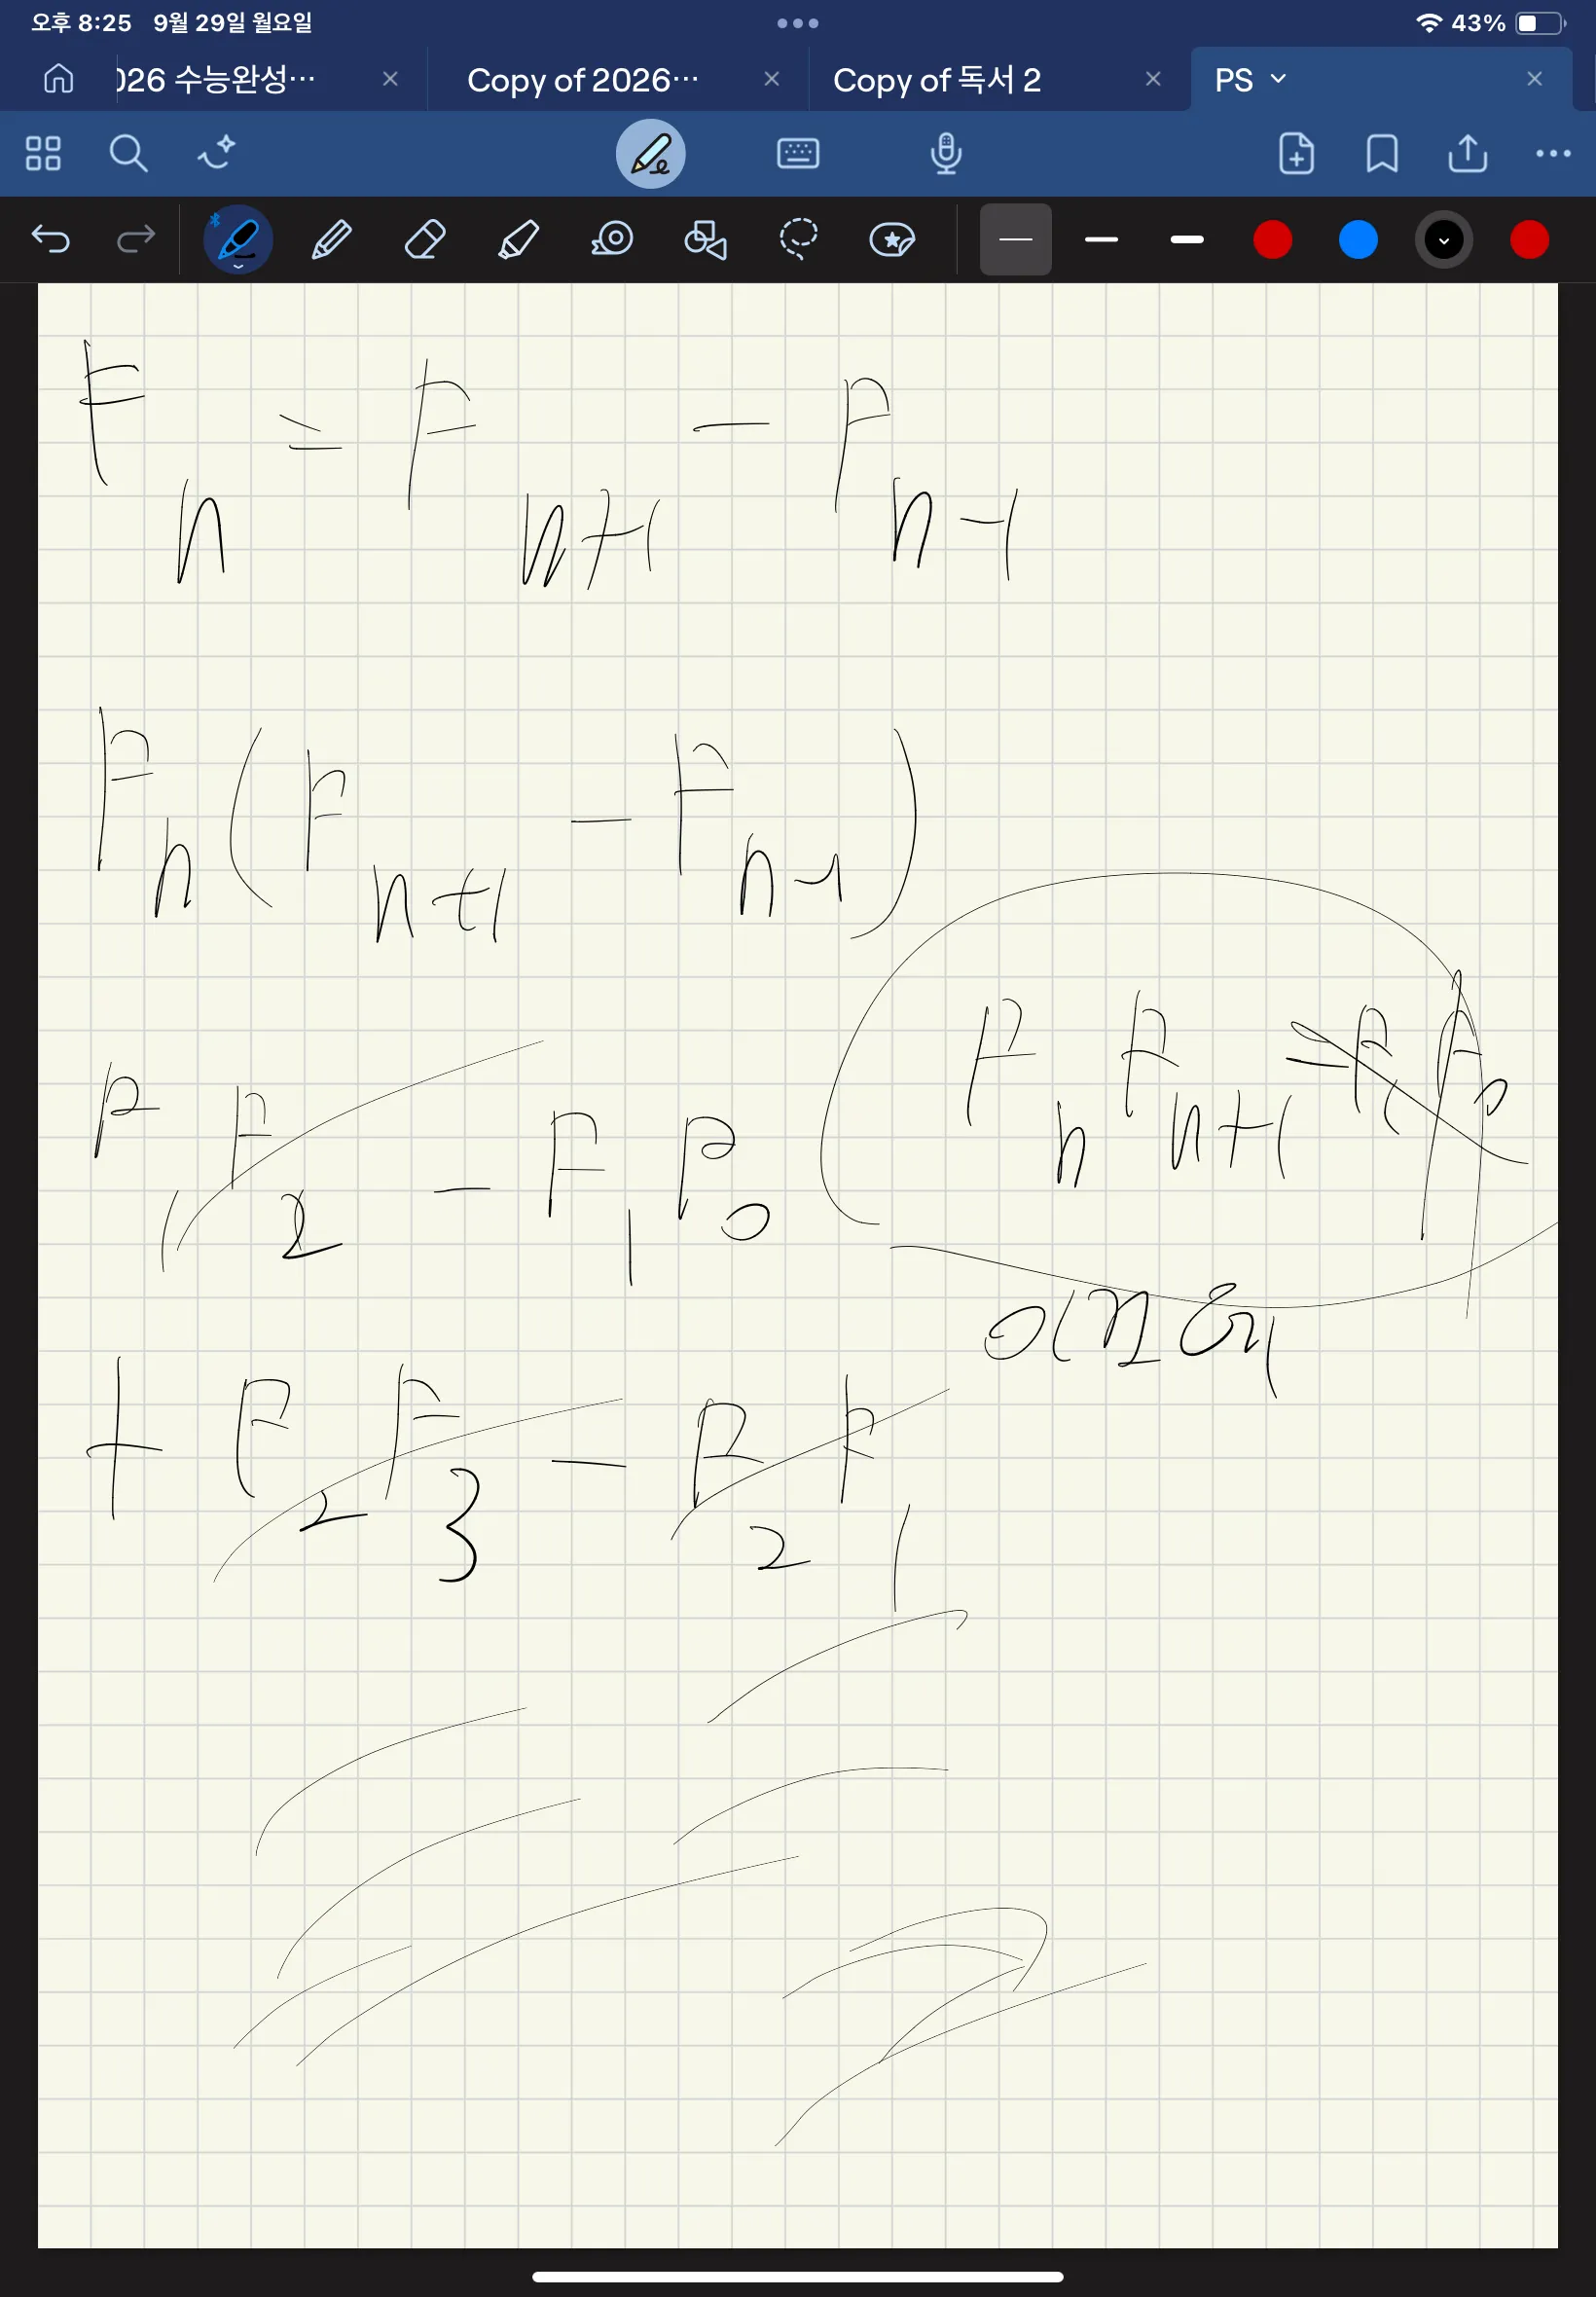 오후 8:25 9월 29일 월요일 43%
026 수능완성… Copy of 2026… Copy of 독서 2 PS
F n = F n+1 - F n-1
F n ( F n+1 - F n-1 )
F n F n+1 - F 1 F 0
F 1 F 2 - F 1 F 0
+ F 2 F 3 - F 2 F 1